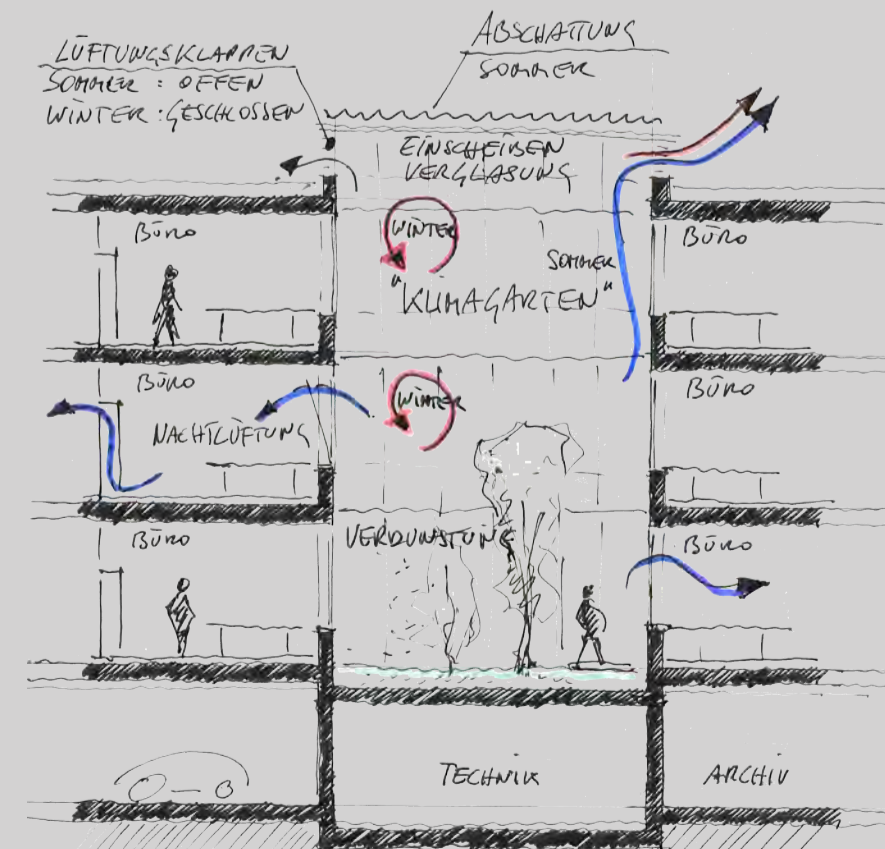 LÜFTUNGSKLAPPEN
SOMMER : OFFEN
WINTER : GESCHLOSSEN
ABSCHATTUNG
SOMMER
EINSCHEIBEN
VERGLASUNG
BÜRO
WINTER
SOMMER
BÜRO
"KLIMAGARTEN"
BÜRO
WINTER
BÜRO
NACHTLÜFTUNG
BÜRO
VERDUNSTUNG
BÜRO
TECHNIK
ARCHIV